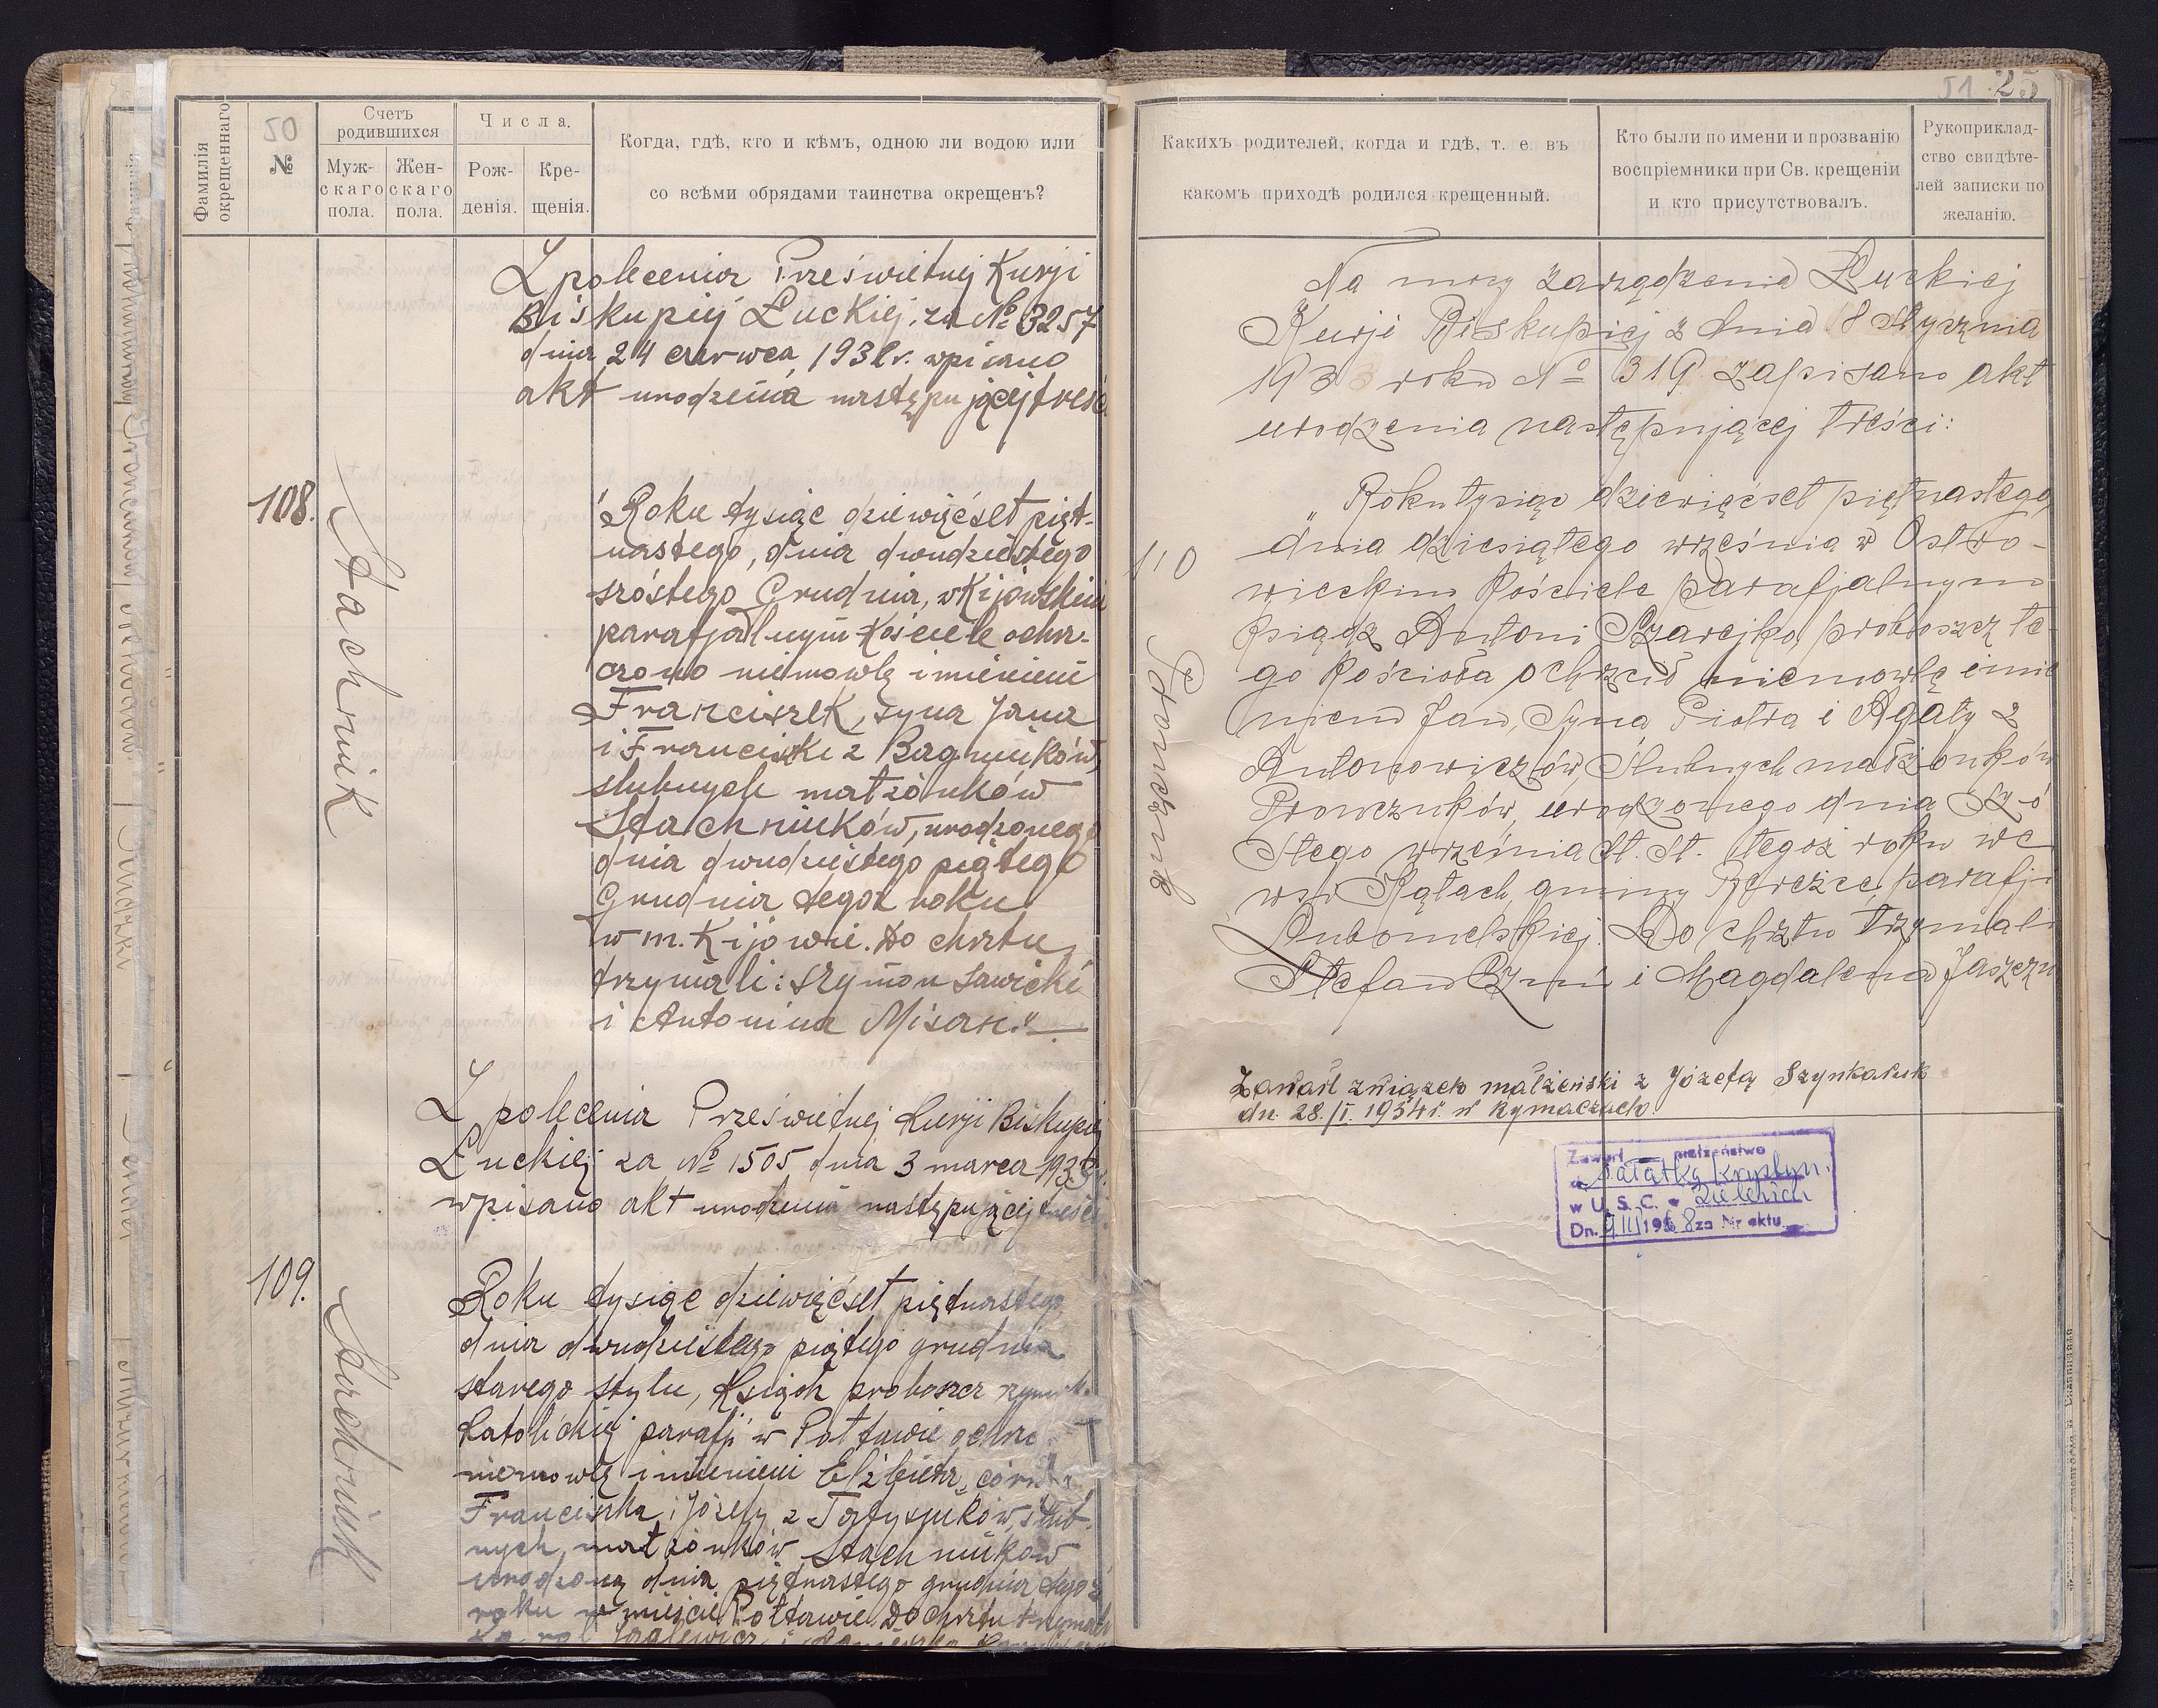 Фамилія окрещеннаго
50
№
Счетъ родившихся
Муж-
скаго
пола.
Жен-
скаго
пола.
Числа.
Рож-
денія.
Кре-
щенія.
Когда, гдѣ, кто и кѣмъ, одною ли водою или
со всѣми обрядами таинства окрещенъ?
Z polecenia Prześwietnej Kurji
Biskupiej Łuckiej, za № 3257
dnia 24 czerwca, 193 r. wpisano
akt urodzenia następującej treści
108.
Stachniuk
"Roku tysiąc dziewięćset pięt-
nastego, dnia dwudziestego
szóstego Grudnia, w Kijowskim
parafjalnym Kościele ochrz-
czono niemowlę imieniem
Franciszek, syna Jana
i Franciszki z Bagniuków,
ślubnych małżonków
Stachniuków, urodzonego
dnia dwudziestego piątego
Grudnia tegoż roku
w m. Kijowie. Do chrztu
trzymali: Szymon Sawicki
i Antonina Misan."
Z polecenia Prześwietnej Kurji Biskupiej
Łuckiej za № 1505 dnia 3 marca 1933 r.
wpisano akt urodzenia następującej treści
109.
Stachniuk
Roku tysiąc dziewięćset piętnastego
dnia dwudziestego piątego grudnia
starego stylu, Ksiądz proboszcz
katolickiej parafji w Połtawie
niemowlę imieniem Elżbieta, córka
Franciszka i Józefy z ślub-
nych małżonków Stachniuków
urodzoną dnia piętnastego grudnia tegoż
roku w mieście Połtawie. Do chrztu trzymali
51 25
Какихъ родителей, когда и гдѣ, т. е. въ
какомъ приходѣ родился крещенный.
Кто были по имени и прозванію
воспріемники при Св. крещеніи
и кто присутствовалъ.
Рукоприклад-
ство свидѣте-
лей записки по
желанію.
Na mocy zarządzenia Łuckiej
Kurji Biskupiej z dnia 18 stycznia
1933 roku № 319 zapisano akt
urodzenia następującej treści:
110
Prończuk
"Roku tysiąc dziewięćset piętnastego,
dnia dziesiątego września w Ostro-
wieckim Kościele parafjalnym
ksiądz Antoni Szarejko, proboszcz te-
go Kościoła ochrzcił niemowlę imie-
niem Jan, Syna Piotra i Agaty z
Antonowiczów, Ślubnych małżonków
Prończuków, urodzonego dnia szó-
stego września st. st. tegoż roku we
wsi Kątach, gminy Bereżce, parafji
Lubomelskiej. Do chrztu trzymali
Stefan i Magdalena
Zawarł związek małżeński z Józefą Szynkaruk
dn. 28./I. 1934 r. w Rymaczach
Zawarł małżeństwo
w U. S. C. w
Dn. 9 III 1968 za Nr aktu